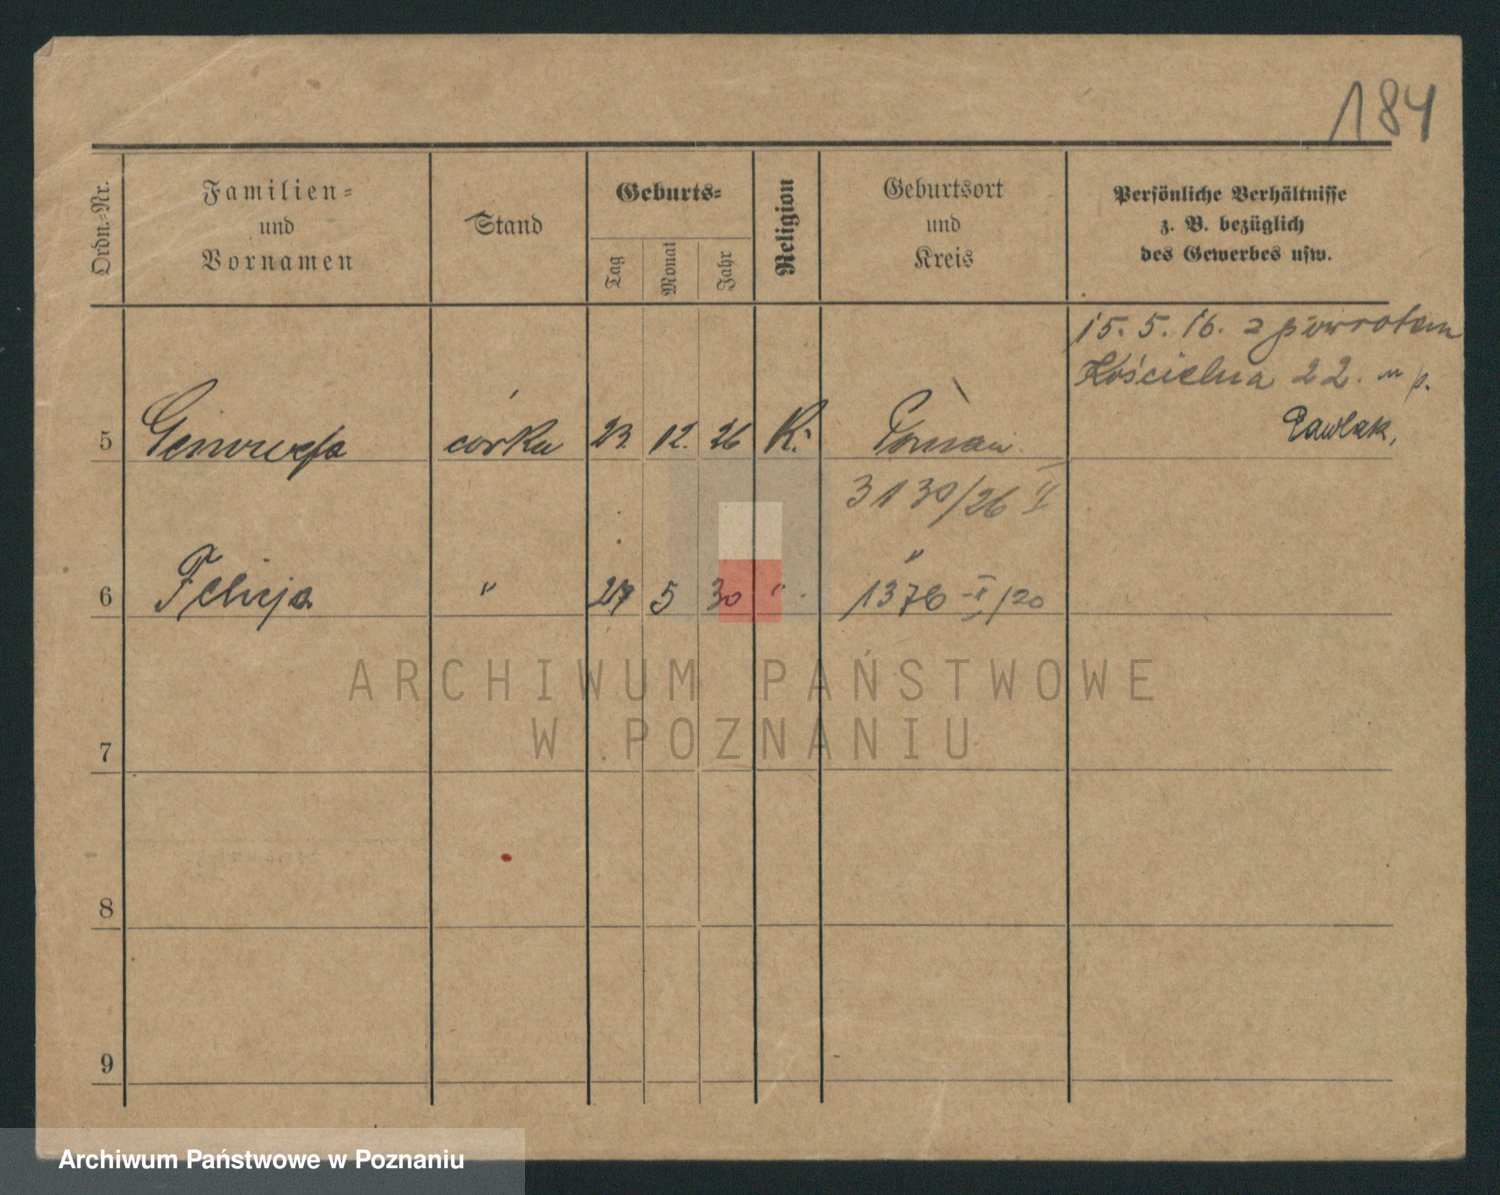 184
Ordn.-Nr.
Familien-
und
Vornamen
Stand
Geburts-
Tag
Monat
Jahr
Religion
Geburtsort
und
Kreis
Persönliche Verhältnisse
z. B. bezüglich
des Gewerbes usw.
15. 5. 16. z powrotem
Kościelna 22.
Pawlak,
5 Genowefa córka 23. 12. 26 K. Poznań
3130/26 II
6 Felicja " 5 30 " "
1376 II/20
7
8
9
ARCHIWUM PAŃSTWOWE
W POZNANIU
Archiwum Państwowe w Poznaniu